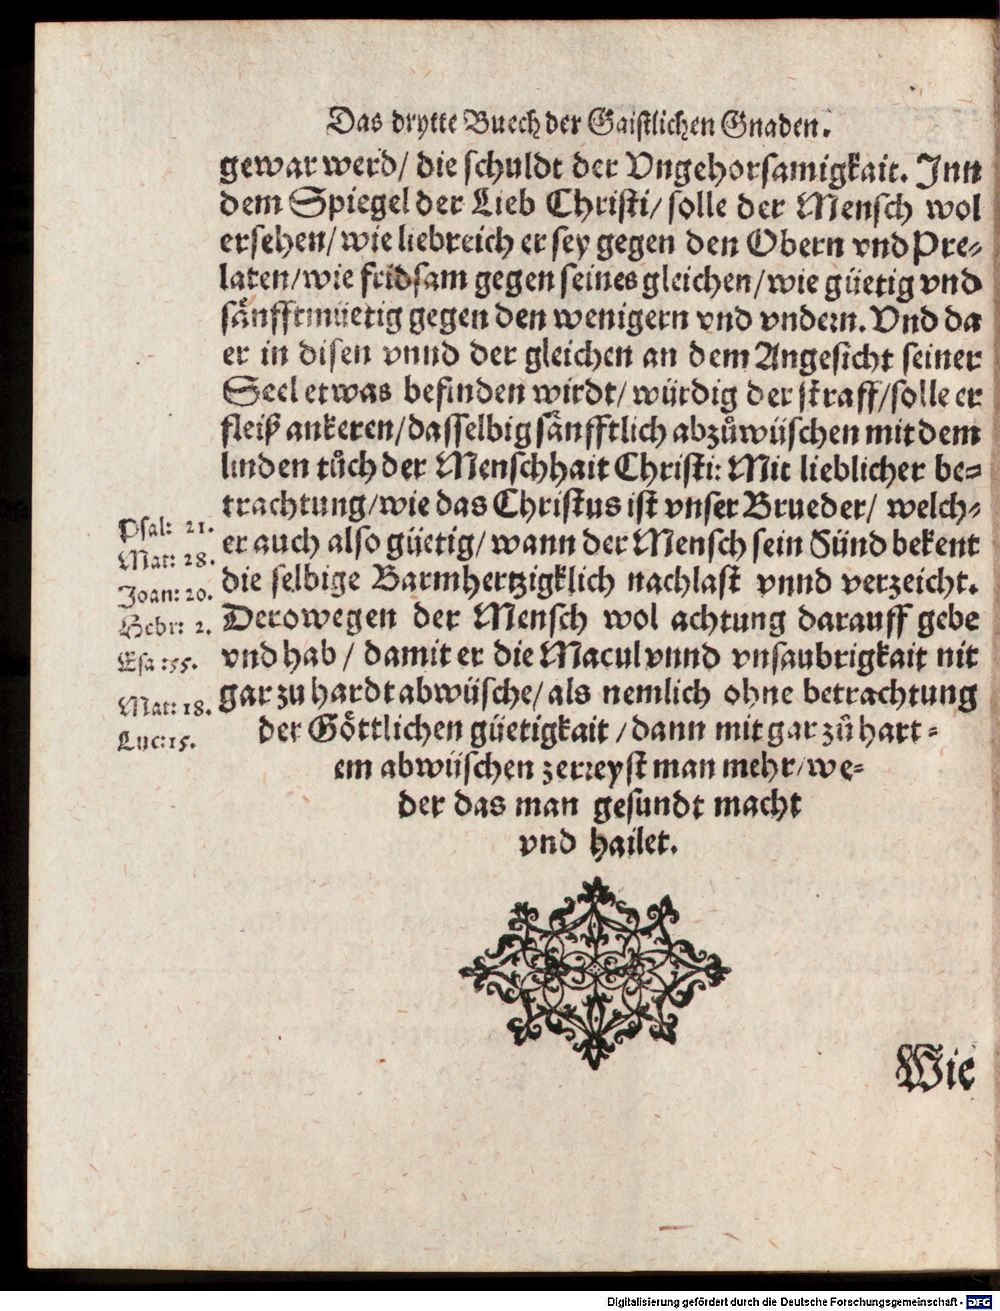 Das drytte Buech der Gaistlichen Gnaden.
gewar werd/ die schuldt der Vngehorsamigkait. Inn
dem Spiegel der Lieb Christi/ solle der Mensch wol
ersehen/ wie liebreich er sey gegen den Obern vnd Pre-
laten/ wie fridsam gegen seines gleichen/ wie güetig vnd
sänfftmüetig gegen den wenigern vnd vndern. Vnd da
er in disen vnnd der gleichen an dem Angesicht seiner
Seel etwas befinden wirdt/ würdig der straff/ solle er
fleiß ankeren/ dasselbig sänfftlich abzůwüschen mit dem
linden tůch der Menschhait Christi: Mit lieblicher be-
trachtung/ wie das Christus ist vnser Brueder/ welch-
er auch also güetig/ wann der Mensch sein Sünd bekent
die selbige Barmhertzigklich nachlast vnnd verzeicht.
Derowegen der Mensch wol achtung darauff gebe
vnd hab / damit er die Macul vnnd vnsaubrigkait nit
gar zu hardt abwüsche/ als nemlich ohne betrachtung
der Göttlichen güetigkait / dann mit gar zů hart-
em abwüschen zerreyst man mehr/ we-
der das man gesundt macht
vnd hailet.
Psal: 21.
Mat: 28.
Joan: 20.
Hebr: 2.
Esa :55.
Mat: 18.
Luc:15.
Wie
Digitalisierung gefördert durch die Deutsche Forschungsgemeinschaft - DFG